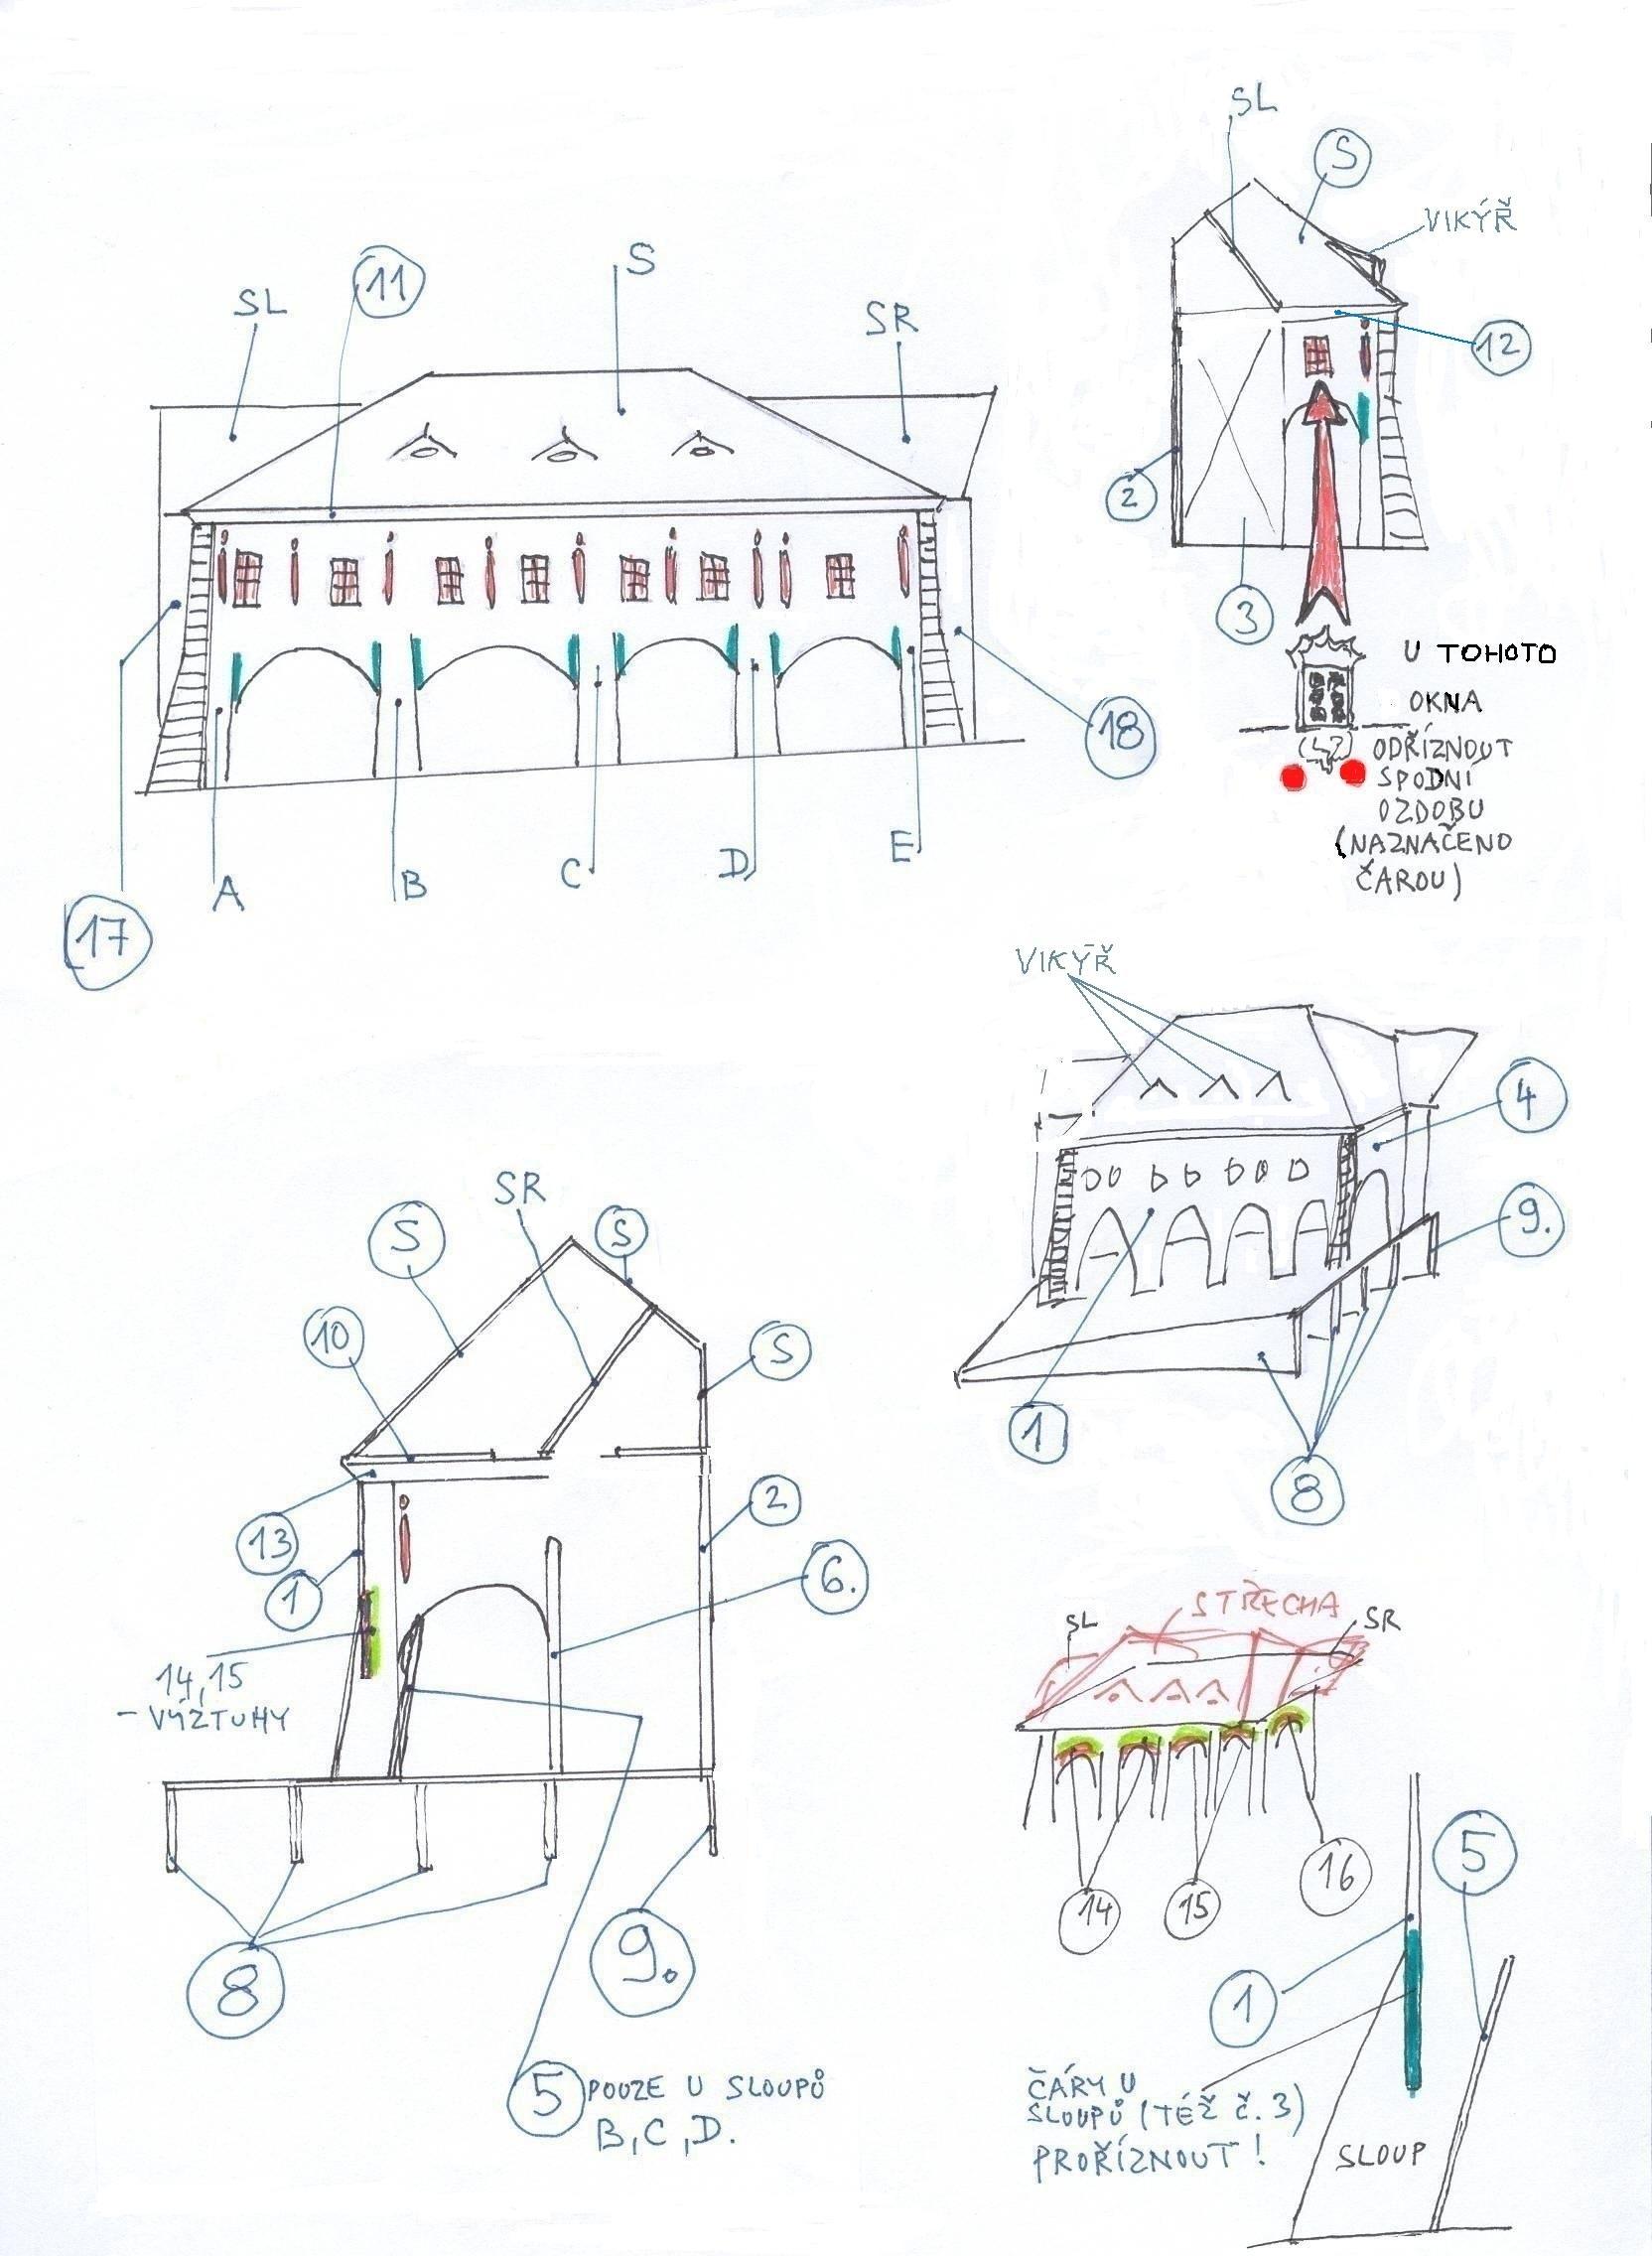 SL
S
VIKÝŘ
12
2
3
11
S
SL
SR
17
18
A
B
C
D
E
U TOHOTO
OKNA
(47) ODŘÍZNOUT
SPODNÍ
OZDOBU
(NAZNAČENO
ČAROU)
VIKÝŘ
4
9.
1
8
SR
S
S
10
S
13
1
2
6.
14,15
- VÝZTUHY
8
9.
5 POUZE U SLOUPŮ
B,C,D.
STŘECHA
SL
SR
14
15
16
5
1
ČÁRY U
SLOUPŮ (TÉŽ Č.3)
PROŘÍZNOUT!
SLOUP